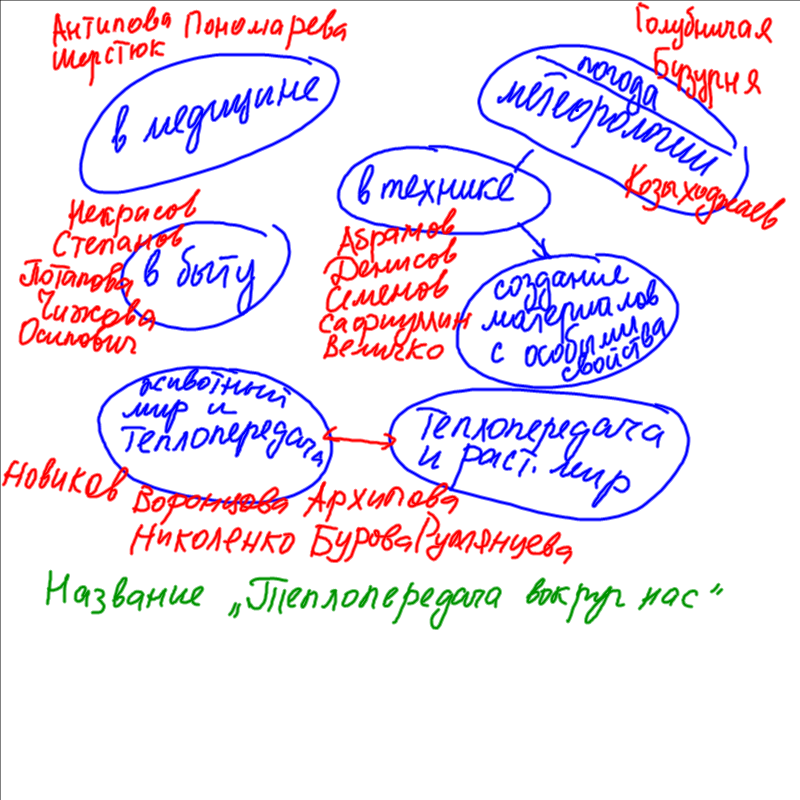 Антипова Пономарева
Шерстюк
в медицине
Голубничая
Бузурня
погода
метеорологии
Козыходжаев
в технике
Некрасов
Степанов
Потапова
Чижова
Осипович
в быту
Абрамов
Денисов
Семенов
Сафиуллин
Величко
создание
материалов
с особыми
свойства
животный
мир и
теплопередача
Теплопередача
и раст. мир
Новиков
Воронцова Архипова
Николенко Бурова Румянцева
Название „Теплопередача вокруг нас"